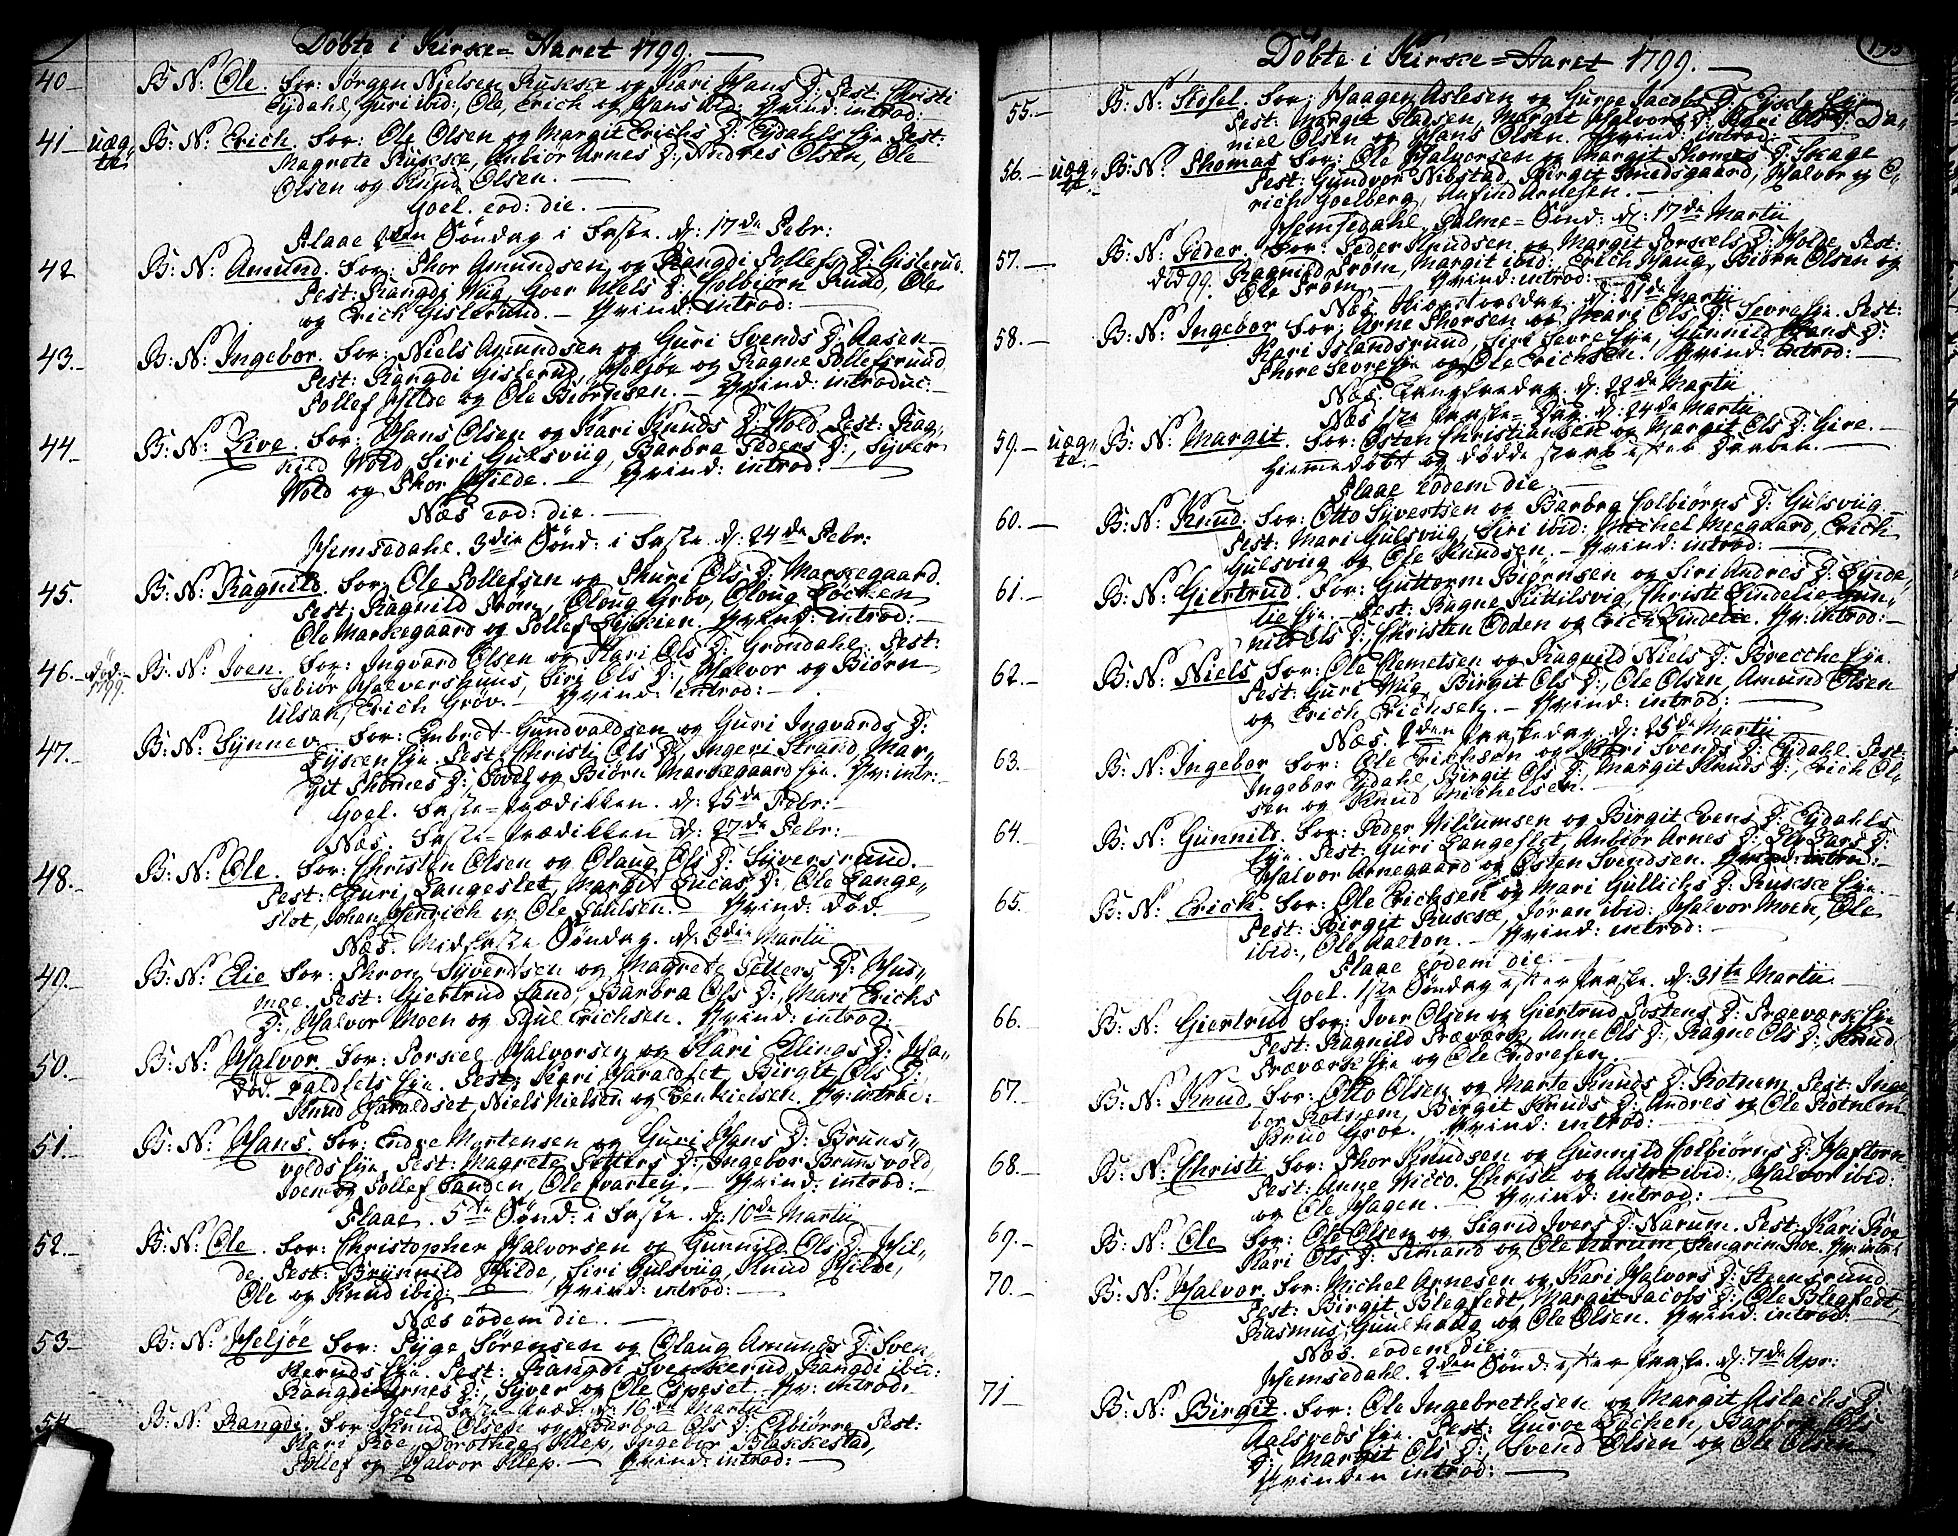 Döbte i Kirke=Aaret 1799.
40 B: N: Ole. For: Jørgen Nielsen Ruksee og Kari Hans D: Test: Christi
Eydahl, Guri ibid:, Ole, Erich og Hans ibid: Qvind: introd:
41 uæg B: N: Erich. For: Ole Olsen og Margit Erichs D: Eydahls Eye Test:
te. Magrete Ruksee, Anbiør Arnes D:, Andres Olsen, Ole
Olsen og Knud Olsen.
Goel. eod: die.
Flaae 2den Søndag i Faste. d: 17de Febr:
42 B: N: Amund. For: Thor Amundsen og Rangdi Tollefs D: Gislerud.
Test: Rangdi Wiig, Goer Niels D: Colbiørn Rund, Ole
og Erich Gislerund. Qvind: introd:
43. B: N: Ingebor. For: Niels Amundsen og Guri Svends D: Aasen
Test: Rangdi Gislerud, Heljøe og Ragne Tollefsruud
Tollef Hilde og Ole Biørnsen. Qvind: introduc:
44 B: N: Live. For: Hans Olsen og Kari Knuds D: Wold Test: Rag
nild Wold, Siri Gulsviig, Barbra Peders D:, Syver
Wold og Thor Hilde. Qvind: introd:
Næs eod: die.
Hemsedahl. 3die Sønd: i Faste. d: 24de Febr:
45. B: N: Ragnild. For: Ole Tollefsen og Thuri Ols D: Markegaard.
Test: Ragnild Trøm, Oloug Grøv, Oloug Løcken
Ole Markegaard og Tollef Eyckien. Qvind: introd:
46. død. B: N: Joen. For: Ingvard Olsen og Kari Ols D: Grøndahl. Test:
1799. Sebiør Halvershuus, Siri Ols D:, Halvor og Biørn
Ulsan, Erich Grøv. Qvind: introd:
47. B: N: Synnev. For: Enbret Gundvaldsen og Guri Ingvards D:
Eycken Eye. Test: Christi Ols D:, Ingeri Strand, Mar
git Thomes D: og Biørn Markegaard Eye. Qv: intr:
Goel. Faste=Prædicken. d: 25de Febr:
Næs. Faste=Prædicken d: 27de Febr:
48. B: N: Ole. For: Christen Olsen og Olaug Ols D: Syversrund.
Test: Guri Langeslet, Margit Lucas D:, Ole Lange
slet, Johan Henrich og Ole Pahlsen. Qvind: død.
Næs. Midfaste Søndag. d: 3die Martii
49. B: N: Elie For: Thron Syvertsen og Magrete Petters D: Hus
moe. Test: Giertrud Sand, Barbra Ols D:, Mari Erichs
D:, Halvor Moen og Poul Erichsen. Qvind: introd:
50. B: N: Halvor. For: Torkel Halvorsen og Kari Ellings D: Ha
død. raldsets Eye. Test: Kari Haraldset, Birgit Ols D:,
Knud Haraldset, Niels Nielsen og Even Nielsen. Qv: introd:
51. B: N: Hans. For: Endre Mortensen og Guri Hans D: Bruns
volds Eye. Test: Magrete Petters D:, Ingebor Brunsvold,
Joen og Tollef Sanden, Ole Svartey. Qvind: introd:
Flaae. 5te Sønd: i Faste. d: 10de Martii
52. B: N: Ole. For: Christopher Halvorsen og Gunnild Ols D: Hil
de Test: Brynnild Hilde, Siri Gulsviig, Knud Hilde,
Ole og Knud ibid: Qvind: introd:
Næs eodem die.
53 B: N: Heljøe For: Syge Sørensen og Olaug Amunds D: Sven
keruds Eye. Test: Rangdi Svenkerud, Rangdi ibid:
Rangdi Arnes D:, Syver og Ole Espeset. Qv: introd:
Goel Faste=Præd: d: 16de Martii
54 B: N: Rangdi. For: Knud Olsen og Barbra Ols D: Test:
Kari Roe, Dorothea Klep, Ingebor Blakkestad,
Tollef og Halvor Klep. Qvind: introd:
Döbte i Kirke=Aaret 1799.
55. B: N: Stofel. For: Haagen Aslesen og Guroe Jacobs D: Eye
Test: Margit Madsen, Margit Halvors D: Kari Ols D: Da
niel Olsen og Hans Olsen. Qvind: introd:
56. uæg B: N: Thomas For: Ole Halvorsen og Margit Thomes D: Skage
te. Test: Gundvor Nibstad, Birgit Smedsgaard, Halvor og E
rich Goelberg, Anfind Arnesen.
Hemsedahl, Palme=Sønd: d: 17de Martii
57. B: N: Peder. For: Peder Knudsen og Margit Torkels D: Holde Test:
død 99. Ragnild Trøm, Margit ibid:, Erich Haug, Biørn Olsen og
Ole Trøm. Qvind: introd:
Næs. Skiærtorsdag. d: 21de Martii
58. B: N: Ingebor For: Arne Thorsen og Kari Ols D: Sevre Eye. Test:
Kari Islandsrund, Siri Sevre Eye, Gunnild Hans D:
Thore Sevre Eye og Ole Erichsen. Qvind: introd:
Næs. Langfredag. d: 22de Martii
Næs 1ste Paaske=Dag. d: 24de Martii
59. uæg B: N: Margit. For: Østen Christiansen og Margit Ols D: Gire.
te. Hiemmedøbt og dødde strax efter Daaben.
Flaae eodem die.
60. B: N: Knud. For: Otto Syvertsen og Barbra Colbiørns D: Gulsviig
Test: Mari Gulsviig, Siri ibid: Michel Meegaard, Erich
Gulsviig og Ole Knudsen. Qvind: introd:
61. B: N: Giertrud. For: Guttorm Biørnsen og Siri Andres D: Lynde
lie Eye. Test: Ragne Sevilsvig, Christi Lindelie Gun
nild Ols D:, Christen Odden og Erich Lindelie. Qv: introd:
62. B: N: Niels For: Ole Clemetsen og Ragnild Niels D: Brecche Eye.
Test: Guri Wiig, Birgit Ols D:, Ole Olsen, Amund Olsen
og Erich Erichsen. Qvind: introd:
Næs. 2den Paaskedag. d: 25de Martii
63. B: N: Ingebor For: Ole Erichsen og Kari Svends D: Eydahl. Test:
Ingebor Eydahl, Birgit Ols D:, Margit Knuds D:, Erich Ol
sen og Knud Michelsen.
64. B: N: Gunnild. For: Peder Nilsumsen og Birgit Evens D: Eydahls
Eye. Test: Guri Langeslet, Anbiør Arnes D: Lars D:
Halvor Arnegaard og Østen Svendsen. Qvind: introd:
65. B: N: Erich. For: Ole Erichsen og Mari Gullichs D: Ruksee Eye.
Test: Birgit Ruksee, Jøran ibid: Halvor Moen, Ole
ibid:, Ole Aalton. Qvind: introd:
Flaae eodem die.
Goel. 1ste Søndag efter Paaske. d: 31te Martii
66. B: N: Giertrud For: Iver Olsen og Giertrud Tostens D: Træværk Eye
Test: Ragnild Træværk, Anne Ols D:, Ragne Ols D:, Knud
Træværk Eye og Ole Endresen.
67. B: N: Knud. For: Otto Olsen og Marte Knuds D: Rotnem. Test: Inge
bor Rotnem, Birgit Knuds D:, Andres og Ole Rotnem
Knud Groe. Qvind: introd:
68. B: N: Christi For: Thor Knudsen og Gunnild Colbiørns D: Haftorn
Test: Anne Wicco, Christi og Astri ibid:, Halvor ibid:
og Ole Hagen. Qvind: introd:
69. B: N: Ole For: Ole Olsen og Sigrid Ivers D: Narum. Test: Kari Roe
Kari Ols D: Semand og Ole Narum, Hangrim Roe. Qv: intr:
70. B: N: Halvor. For: Michel Arnesen og Kari Halvors D: Steensrund
Test: Birgit Blegfedt, Margit Jacobs D: Ole Blegfedt,
Rasmus Guulhaug og Ole Olsen. Qvind: introd:
Næs. eodem die.
Hemsedahl. 2den Sønd: efter Paaske. d: 7de Apr:
71 B: N: Birgit. For: Ole Ingebrethsen og Margit Aslachs D:
Aalsveds Eye. Test: Guroe Løchen, Barbra Ols
D:, Margit Ols D:, Svend Olsen og Ole Olsen
Qvinden introd: